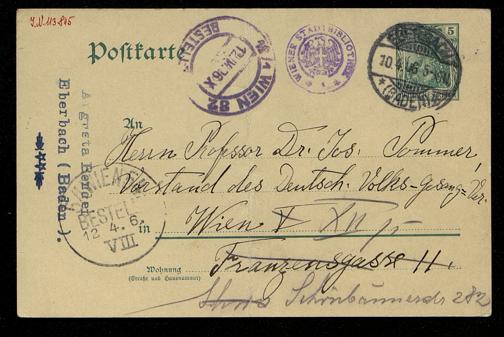 I.N. 113.845
Postkarte
BESTELLT
12.IV.06.X
WIEN 82
WIENER STADTBIBLIOTHEK
10.4.06.5-6N.
(BADEN)
5
An
Herrn Professor Dr. Jos. Pommer,
Vorstand des Deutsch. Volks-Gesang-Ver.
in Wien
Franzensgasse 11.
Wohnung
(Straße und Hausnummer)
Schönbrunnerstr 282
Eberbach (Baden).
BESTELLT
12.4.6.
VIII